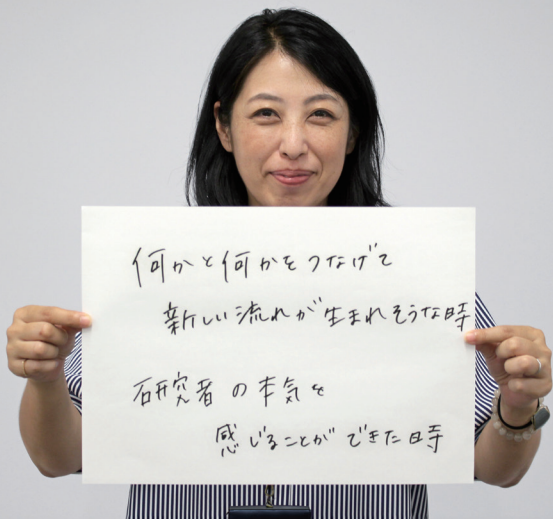 何かと何かをつなげて
新しい流れが生まれそうな時
研究者の本気を
感じることができた時